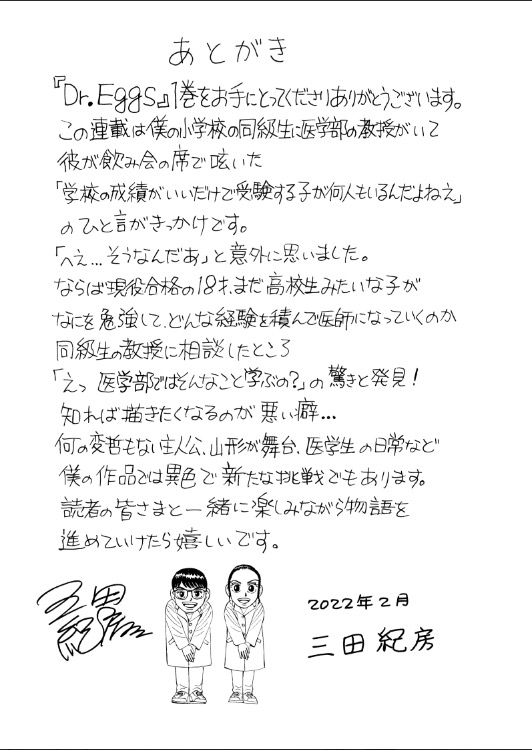 あとがき
『Dr.Eggs』1巻をお手にとってくださりありがとうございます。
この連載は僕の小学校の同級生に医学部の教授がいて
彼が飲み会の席で呟いた
「学校の成績がいいだけで受験する子が何人もいるんだよねえ」
のひと言がきっかけです。
「へえ…そうなんだあ」と意外に思いました。
ならば現役合格の18才、まだ高校生みたいな子が
なにを勉強して、どんな経験を積んで医師になっていくのか
同級生の教授に相談したところ
「えっ 医学部ではそんなこと学ぶの?」の驚きと発見!
知れば描きたくなるのが悪い癖…
何の変哲もない主人公、山形が舞台、医学生の日常など
僕の作品では異色で新たな挑戦でもあります。
読者の皆さまと一緒に楽しみながら物語を
進めていけたら嬉しいです。
三田紀房
2022年2月
三田紀房